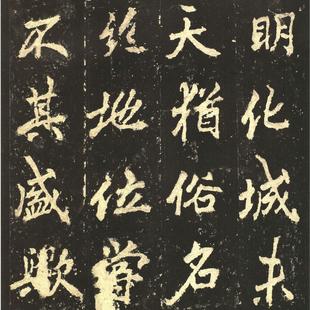 明化城未
天猶俗名
絶地位嘗
不其盛歟